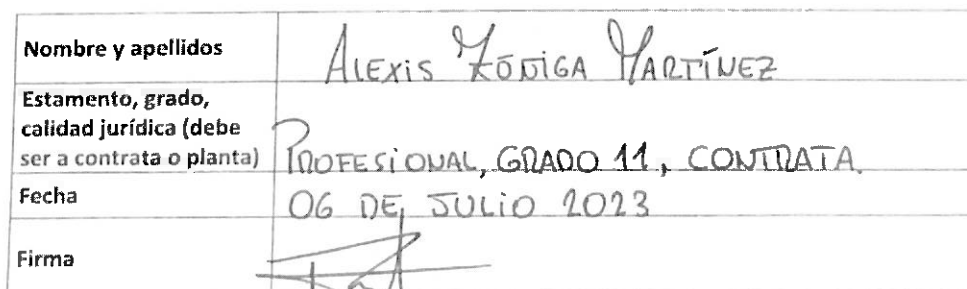 Nombre y apellidos
ALEXiS ZÚÑIGA MARTÍNEZ
Estamento, grado,
calidad jurídica (debe
ser a contrata o planta)
PROFESiONAL, GRADO 11, CONTRATA.
Fecha
06 DE JULiO 2023
Firma